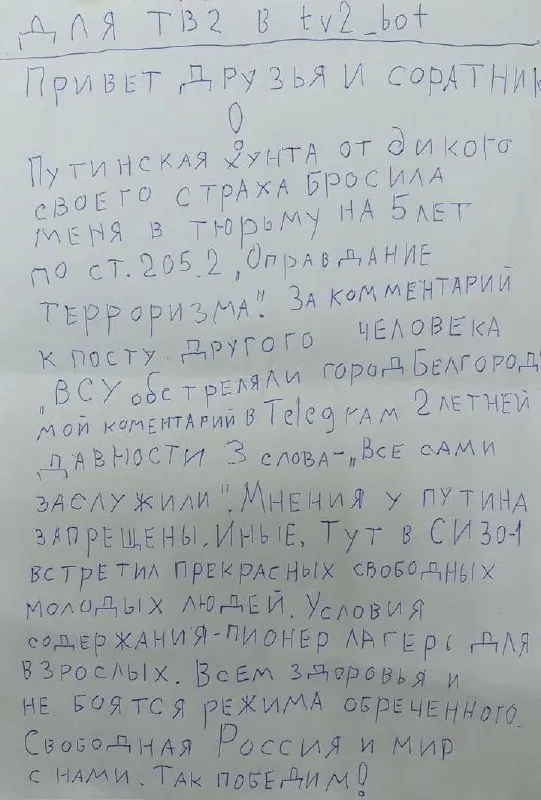 ДЛЯ ТВ2 В tv2_bot
ПРИВЕТ ДРУЗЬЯ И СОРАТНИК
ПУТИНСКАЯ ХУНТА ОТ ДИКОГО
СВОЕГО СТРАХА БРОСИЛА
МЕНЯ В ТЮРЬМУ НА 5 ЛЕТ
ПО СТ. 205.2 „ОПРАВДАНИЕ
ТЕРРОРИЗМА". ЗА КОММЕНТАРИЙ
К ПОСТУ ДРУГОГО ЧЕЛОВЕКА
„ВСУ обстреляли город Белгород"
МОЙ КОМЕНТАРИЙ В Telegram 2 ЛЕТНЕЙ
ДАВНОСТИ 3 СЛОВА-„ВСЕ САМИ
ЗАСЛУЖИЛИ". МНЕНИЯ У ПУТИНА
ЗАПРЕЩЕНЫ. ИНЫЕ. ТУТ В СИЗО-1
ВСТРЕТИЛ ПРЕКРАСНЫХ СВОБОДНЫХ
МОЛОДЫХ ЛЮДЕЙ. УСЛОВИЯ
СОДЕРЖАНИЯ-ПИОНЕР ЛАГЕРЬ ДЛЯ
ВЗРОСЛЫХ. ВСЕМ ЗДОРОВЬЯ И
НЕ БОЯТСЯ РЕЖИМА ОБРЕЧЕННОГО.
СВОБОДНАЯ РОССИЯ И МИР
С НАМИ. ТАК ПОБЕДИМ!